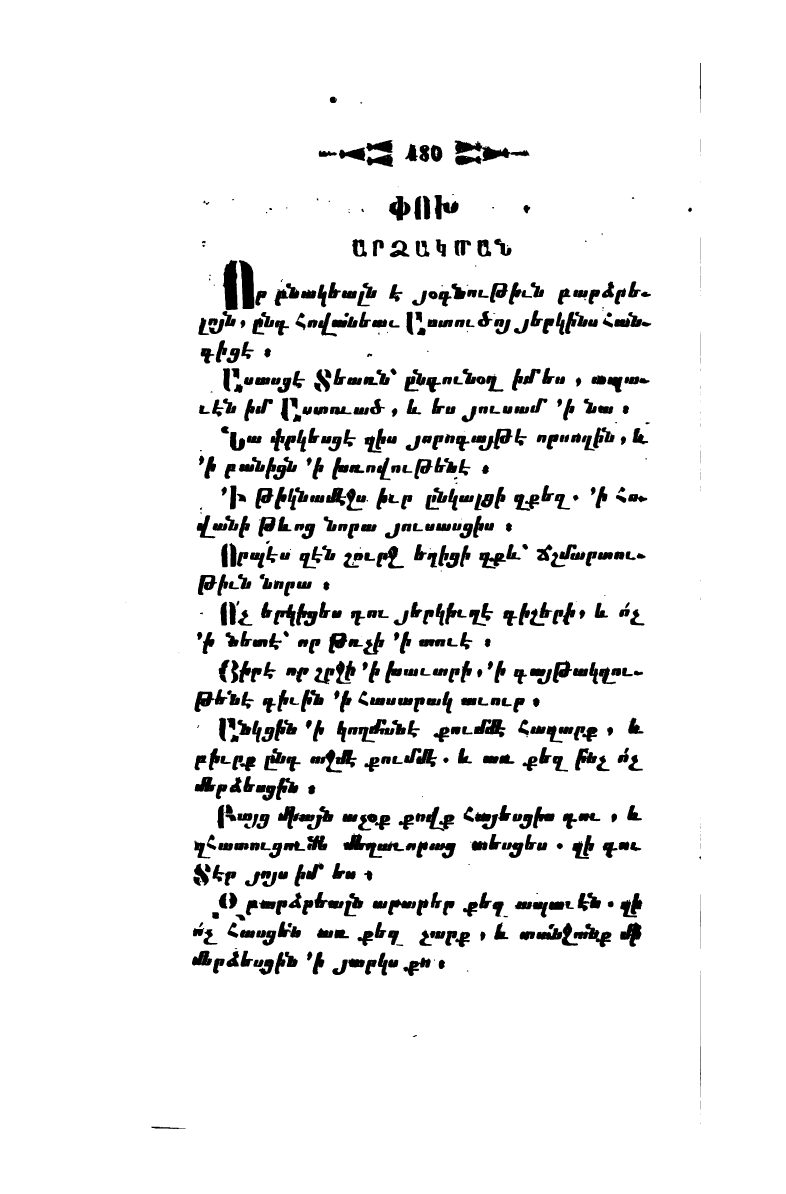 480
ՓՈԽ
ԱՐՁԱԿՄԱՆ
Որ բնակեալն է յօգնութիւն բարձրե-
լոյն, ընդ հովանեաւ Աստուծոյ յերկինս հան-
գիցէ ։
Ասասցէ Տեառն՝ ընդունօղ իմ ես, ապա-
ւէն իմ Աստուած, և ես յուսամ 'ի նա ։
Նա փրկեսցէ զիս յորոգայթէ որսողին, և
'ի բանից 'ի խռովութենէ ։
'Ի թիկնամէջս իւր ընկալցի զքեզ. 'ի հո-
վանի թևոց նորա յուսասցիս ։
Որպէս զէն շուրջ եղիցի զքև՝ ճշմարտու-
թիւն նորա ։
Ո՛չ երկիցես դու յերկիւղէ գիշերի, և ո՛չ
'ի նետէ՝ որ թռչի 'ի տուէ ։
Յիրէ որ շրջի 'ի խաւարի, 'ի գայթակղու-
թենէ դիւին 'ի հասարակ աւուր ։
Անկցին 'ի կողմանէ քումմէ հազարք, և
բիւրք ընդ աջմէ քումմէ. և առ քեզ ինչ ո՛չ
մերձեսցին ։
Բայց միայն աչօք քովք հայեսցիս դու, և
զհատուցումն մեղաւորաց տեսցես. զի դու
Տէր յոյս իմ ես ։
Օ բարձրեալն արարեր քեզ ապաւէն. զի
ո՛չ հասցեն առ քեզ չարք, և տանջանք մի
մերձեսցին 'ի յարկս քո ։